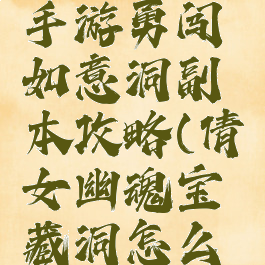 手游勇闯
如意洞副
本攻略(倩
女幽魂宝
藏洞怎么